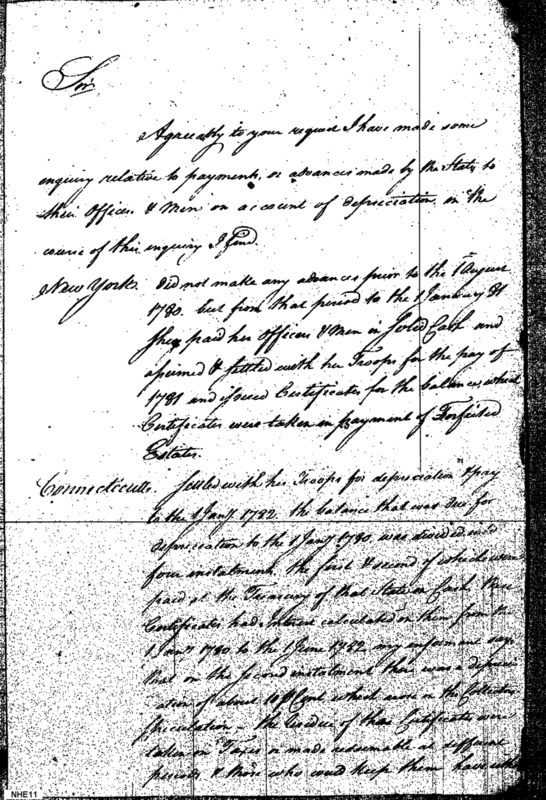 Sir
Agreeably to your request I have made some
inquiry relative to payments, or advances made by the States to
their Officers & Men on account of depreciation, in the
course of this inquiry I find.
New York. did not make any advances prior to the 1 August
1780. but from that period to the 1 January 81
She paid her Officers & Men in Solid Cash and
assumed & settled with her Troops for the pay of
1781 and issued Certificates for the balances, which
Certificates were taken in payment of Forfeited
Estates.
Connecticutt. Settled with his Troops for depreciation & pay
to the 1 Jany 1782. the balance that was due for
depreciation to the 1 Jany 1780. was divided into
four instalments, the first & second of which were
paid at the Treasury of that State in Cash. these
Certificates had Interest calculated on them from the
1. Jany 1780 to the 1 June 1782. my informant says
that on the second instalment there was a depreci-
ation of about 10 P Cent which arose in the Collectors
Speculation – the residue of these Certificates were
taken in Taxes or made redeemable at different
periods, & those who could keep them have
NHE11